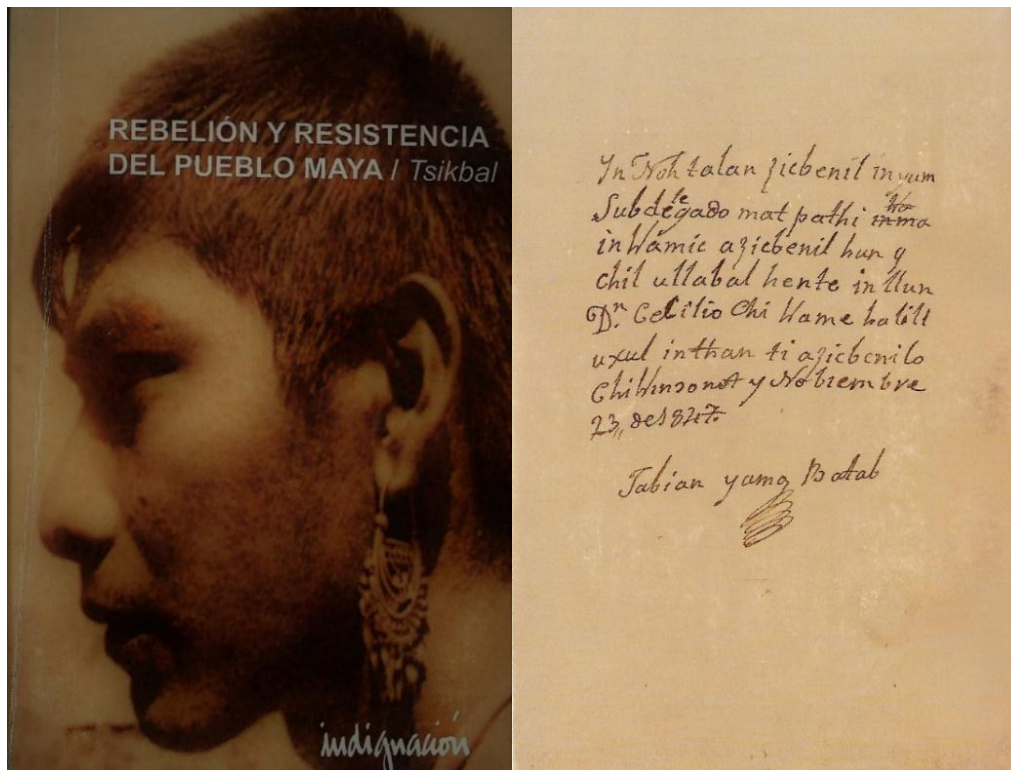 REBELIÓN Y RESISTENCIA
DEL PUEBLO MAYA / Tsikbal
indignación
In Noh talan zicbenil in yum
Subdelegado mat pathi
in Wamic azicbenil hun y
chil ullabal hente in llun
Dn. Cecilio Chi Wame halill
uxul inthan ti azicbenilo
y Nobiembre
23,, de 1847.
Fabian yama Batab